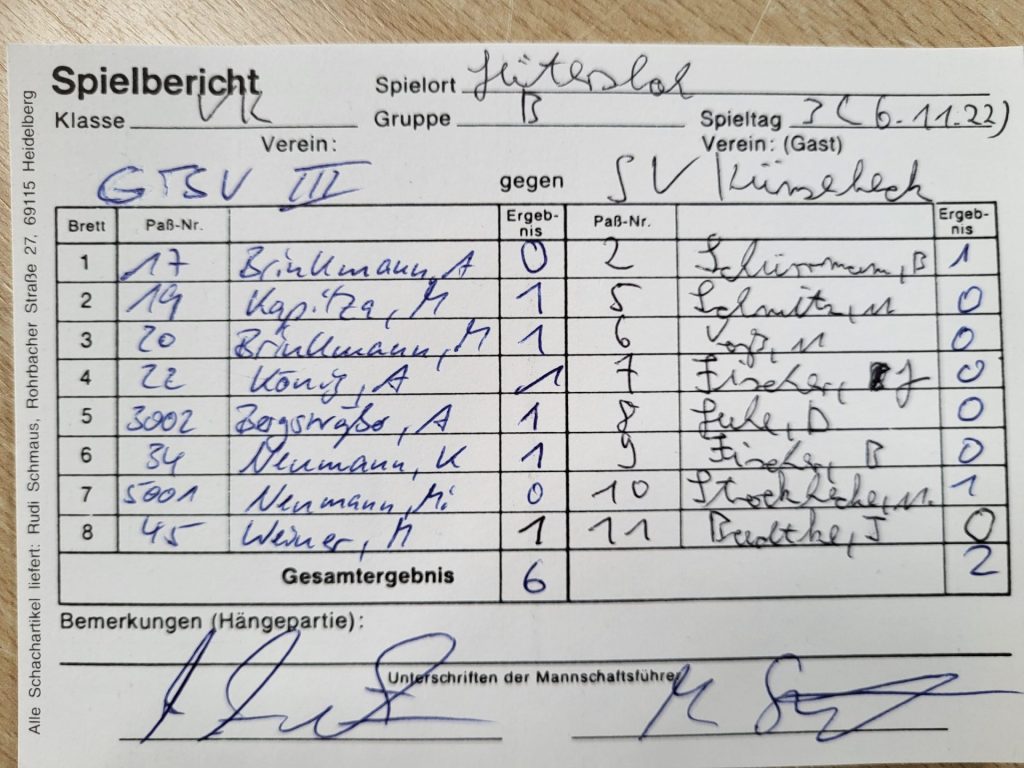 Spielbericht Spielort Gütersloh
Klasse VK Gruppe B Spieltag 3 (6.11.22)
Verein: Verein: (Gast)
GTSV III gegen SV Künsebeck
Brett Paß-Nr. Ergeb-nis Paß-Nr. Ergeb-nis
1 17 Brinkmann, A 0 2 Schürmann, B 1
2 19 Kapitza, M 1 5 Schmitz, M 0
3 20 Brinkmann, M 1 6 Voß, M 0
4 22 König, A 1 7 Fischer, J 0
5 3002 Bergsträßer, A 1 8 D 0
6 34 Neumann, K 1 9 Fischer, B 0
7 5001 Neumann, Mi 0 10 1
8 45 Weiner, M 1 11 J 0
Gesamtergebnis 6 2
Bemerkungen (Hängepartie):
Unterschriften der Mannschaftsführer
Alle Schachartikel liefert: Rudi Schmaus, Rohrbacher Straße 27, 69115 Heidelberg